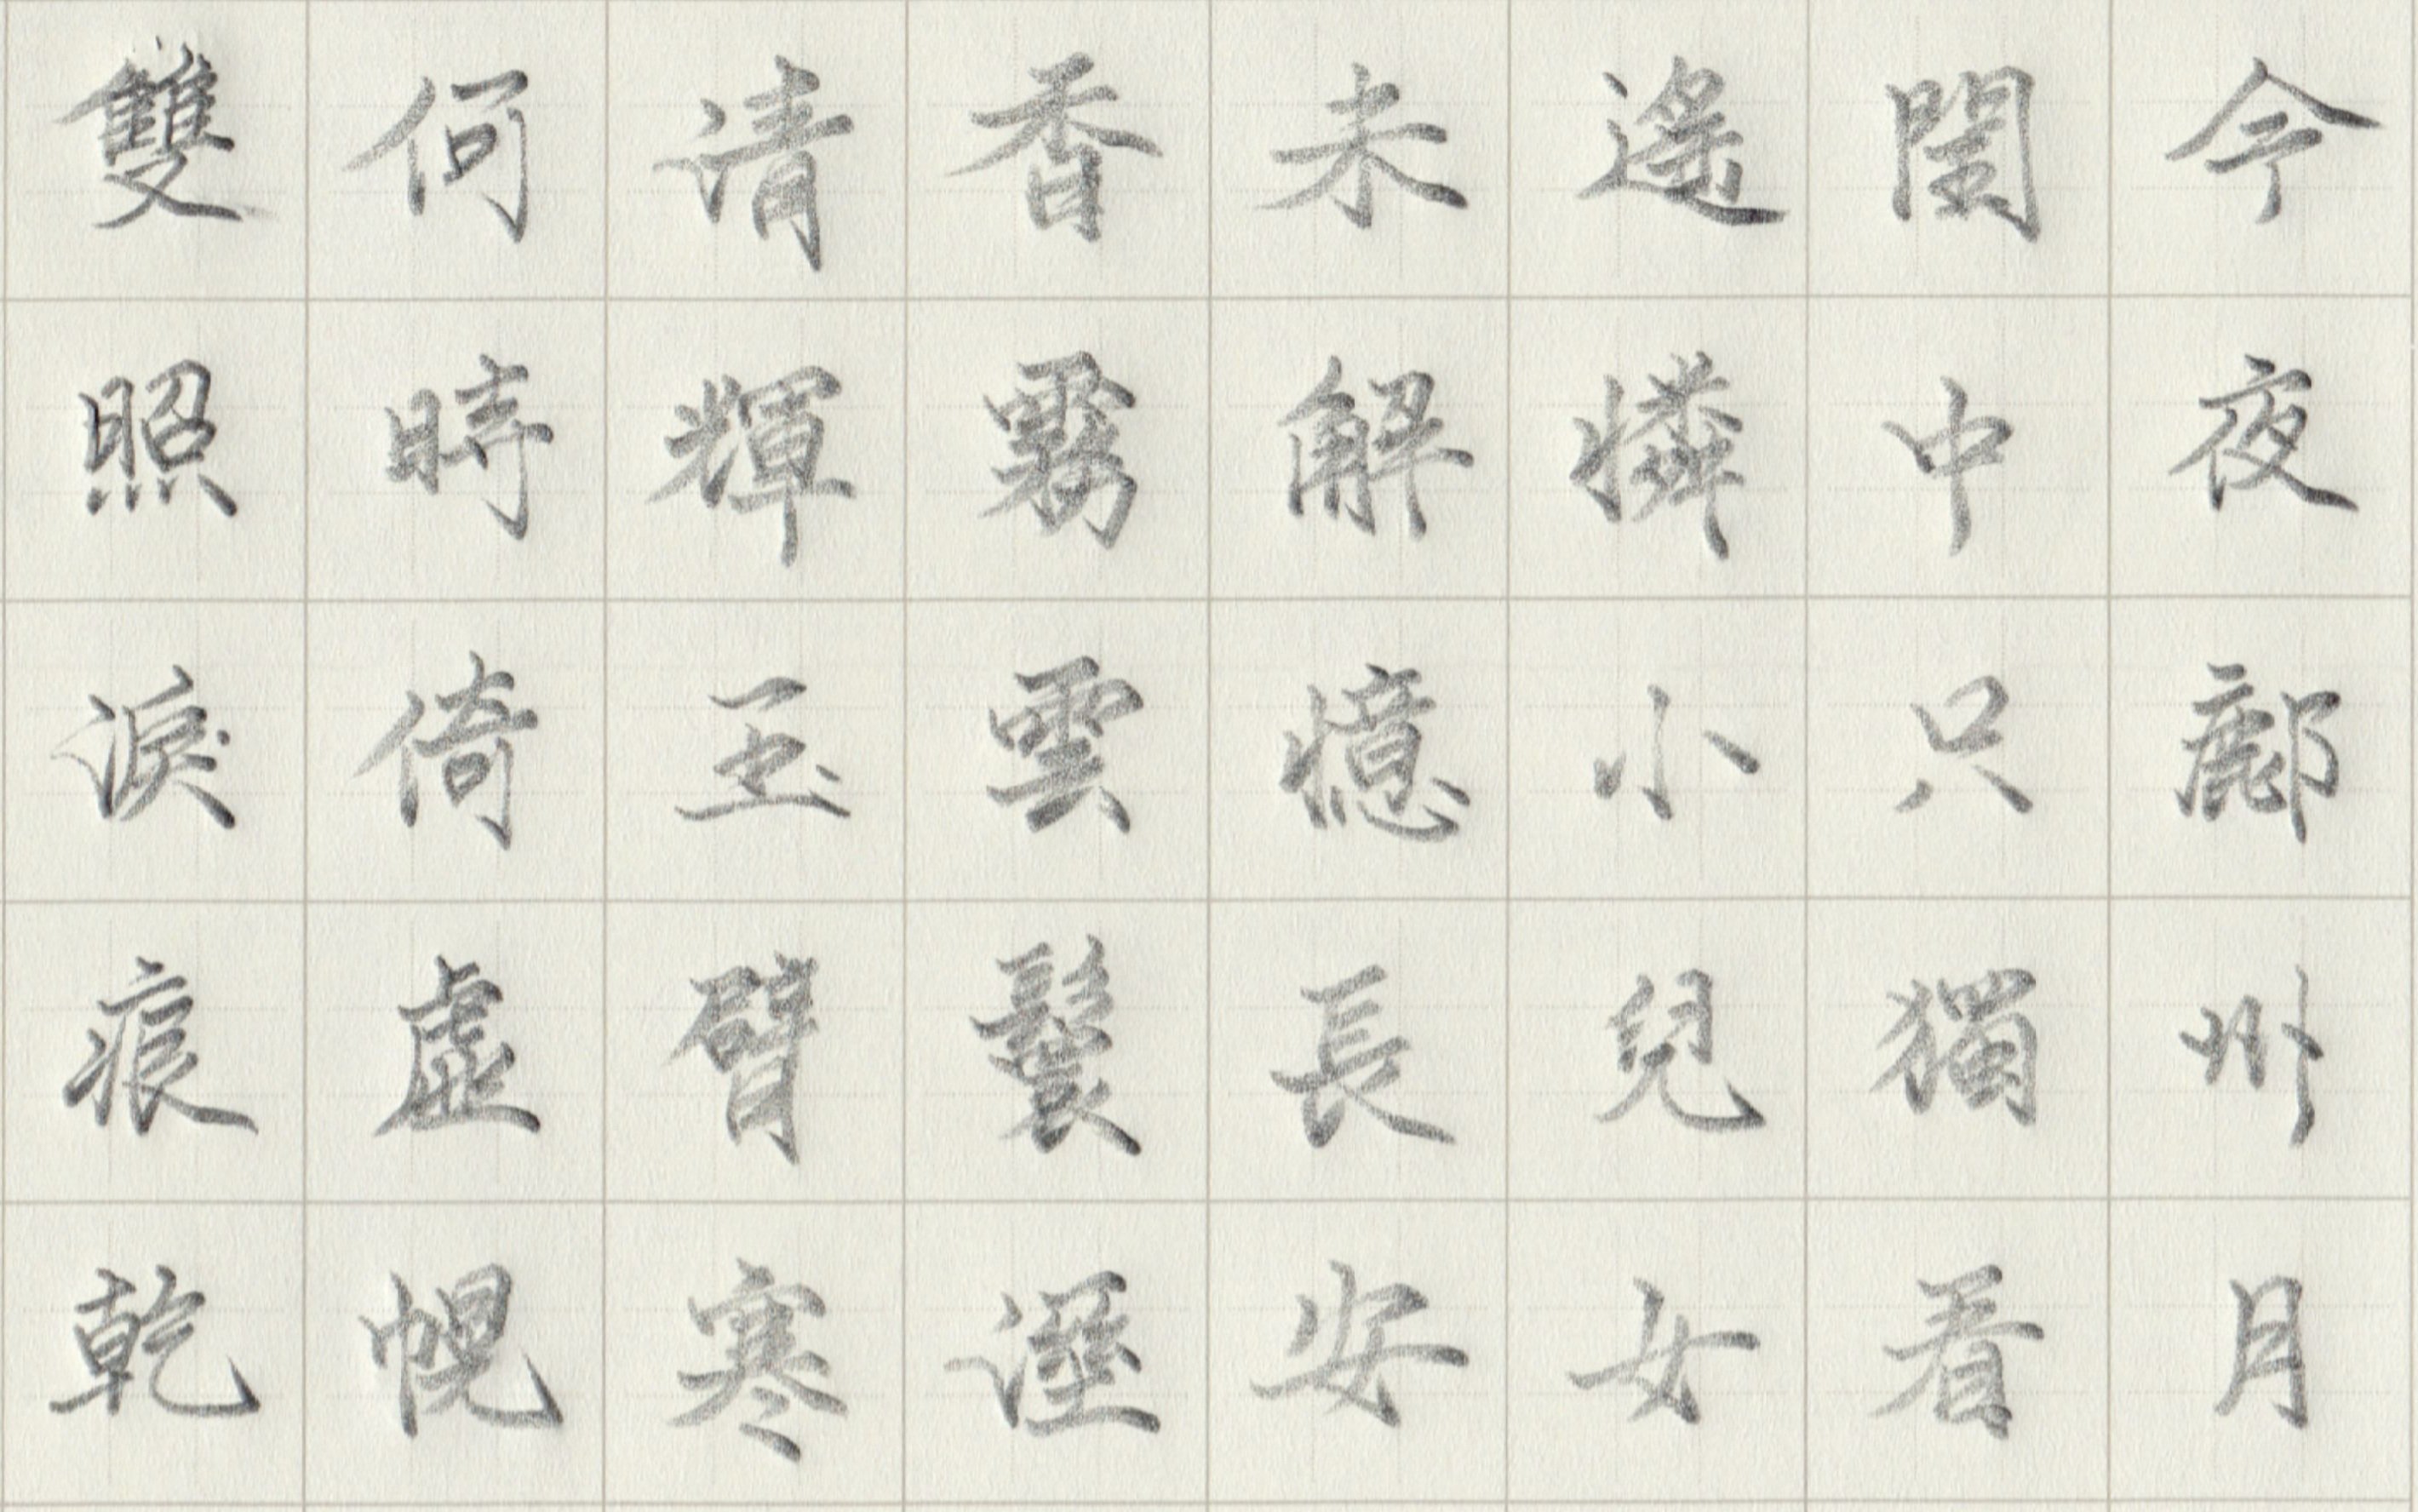 今夜鄜州月
閨中只獨看
遙憐小兒女
未解憶長安
香霧雲鬟溼
清輝玉臂寒
何時倚虛幌
雙照淚痕乾